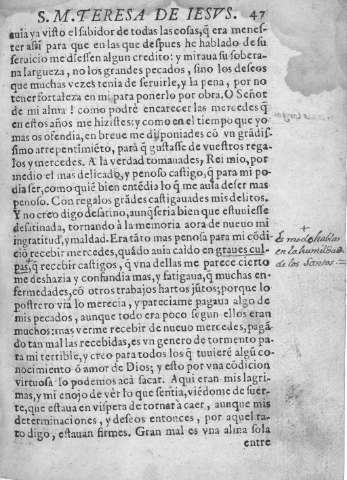 S. M. TERESA DE IESVS. 47
auia ya visto el sabidor de todas las cosas, q̃ era menes-
ter assi para que en las que despues he hablado de su
seruicio me diessen algun credito: y miraua su sobera-
na largueza, no los grandes pecados, sino los deseos
que muchas vezes tenia de seruirle, y la pena, por no
tener fortaleza en mi para ponerlo por obra. O Señor
de mi alma! como podrè encarecer las mercedes q̃
en estos años me hizistes; y como en el tiempo que yo
mas os ofendia, en breue me disponiades cõ vn grãdis-
simo arrepentimiẽto, para q̃ gustasse de vuestros rega-
los y mercedes. A la verdad tomauades, Rei mio, por
medio el mas delicado, y penoso castigo, q̃ para mi po-
dia ser, como quiẽ bien entẽdia lo q̃ me auia de ser mas
penoso. Con regalos grãdes castigauades mis delitos.
Y no creo digo desatino, aunq̃ seria bien que estuuiesse
desatinada, tornando à la memoria aora de nueuo mi
ingratitud, y maldad. Era tãto mas penosa para mi cõdi-
ciõ recebir mercedes, quãdo auia caido en graues cul-
pas, q̃ recebir castigos, q̃ vna dellas me parece cierto
me deshazia y confundia mas, y fatigaua, q̃ muchas en-
fermedades, cõ otros trabajos hartos jũtos; porque lo
postrero via lo merecia, y pareciame pagaua algo de
mis pecados, aunque todo era poco segun ellos eran
muchos: mas verme recebir de nueuo mercedes, pagã-
do tan mal las recebidas, es vn genero de tormento pa-
ra mi terrible, y creo para todos los q̃ tuuierẽ algũ co-
nocimiento ò amor de Dios; y esto por vna cõdicion
virtuosa lo podemos acà sacar. Aqui eran mis lagri-
mas, y mi enojo de ver lo que sentia, viẽdome de suer-
te, que estaua en vispera de tornar à caer, aunque mis
determinaciones, y deseos entonces, por aquel ra-
to digo, estauan firmes. Gran mal es vna alma sola
entre
Es modo hablar
en la humildad
de los Santos